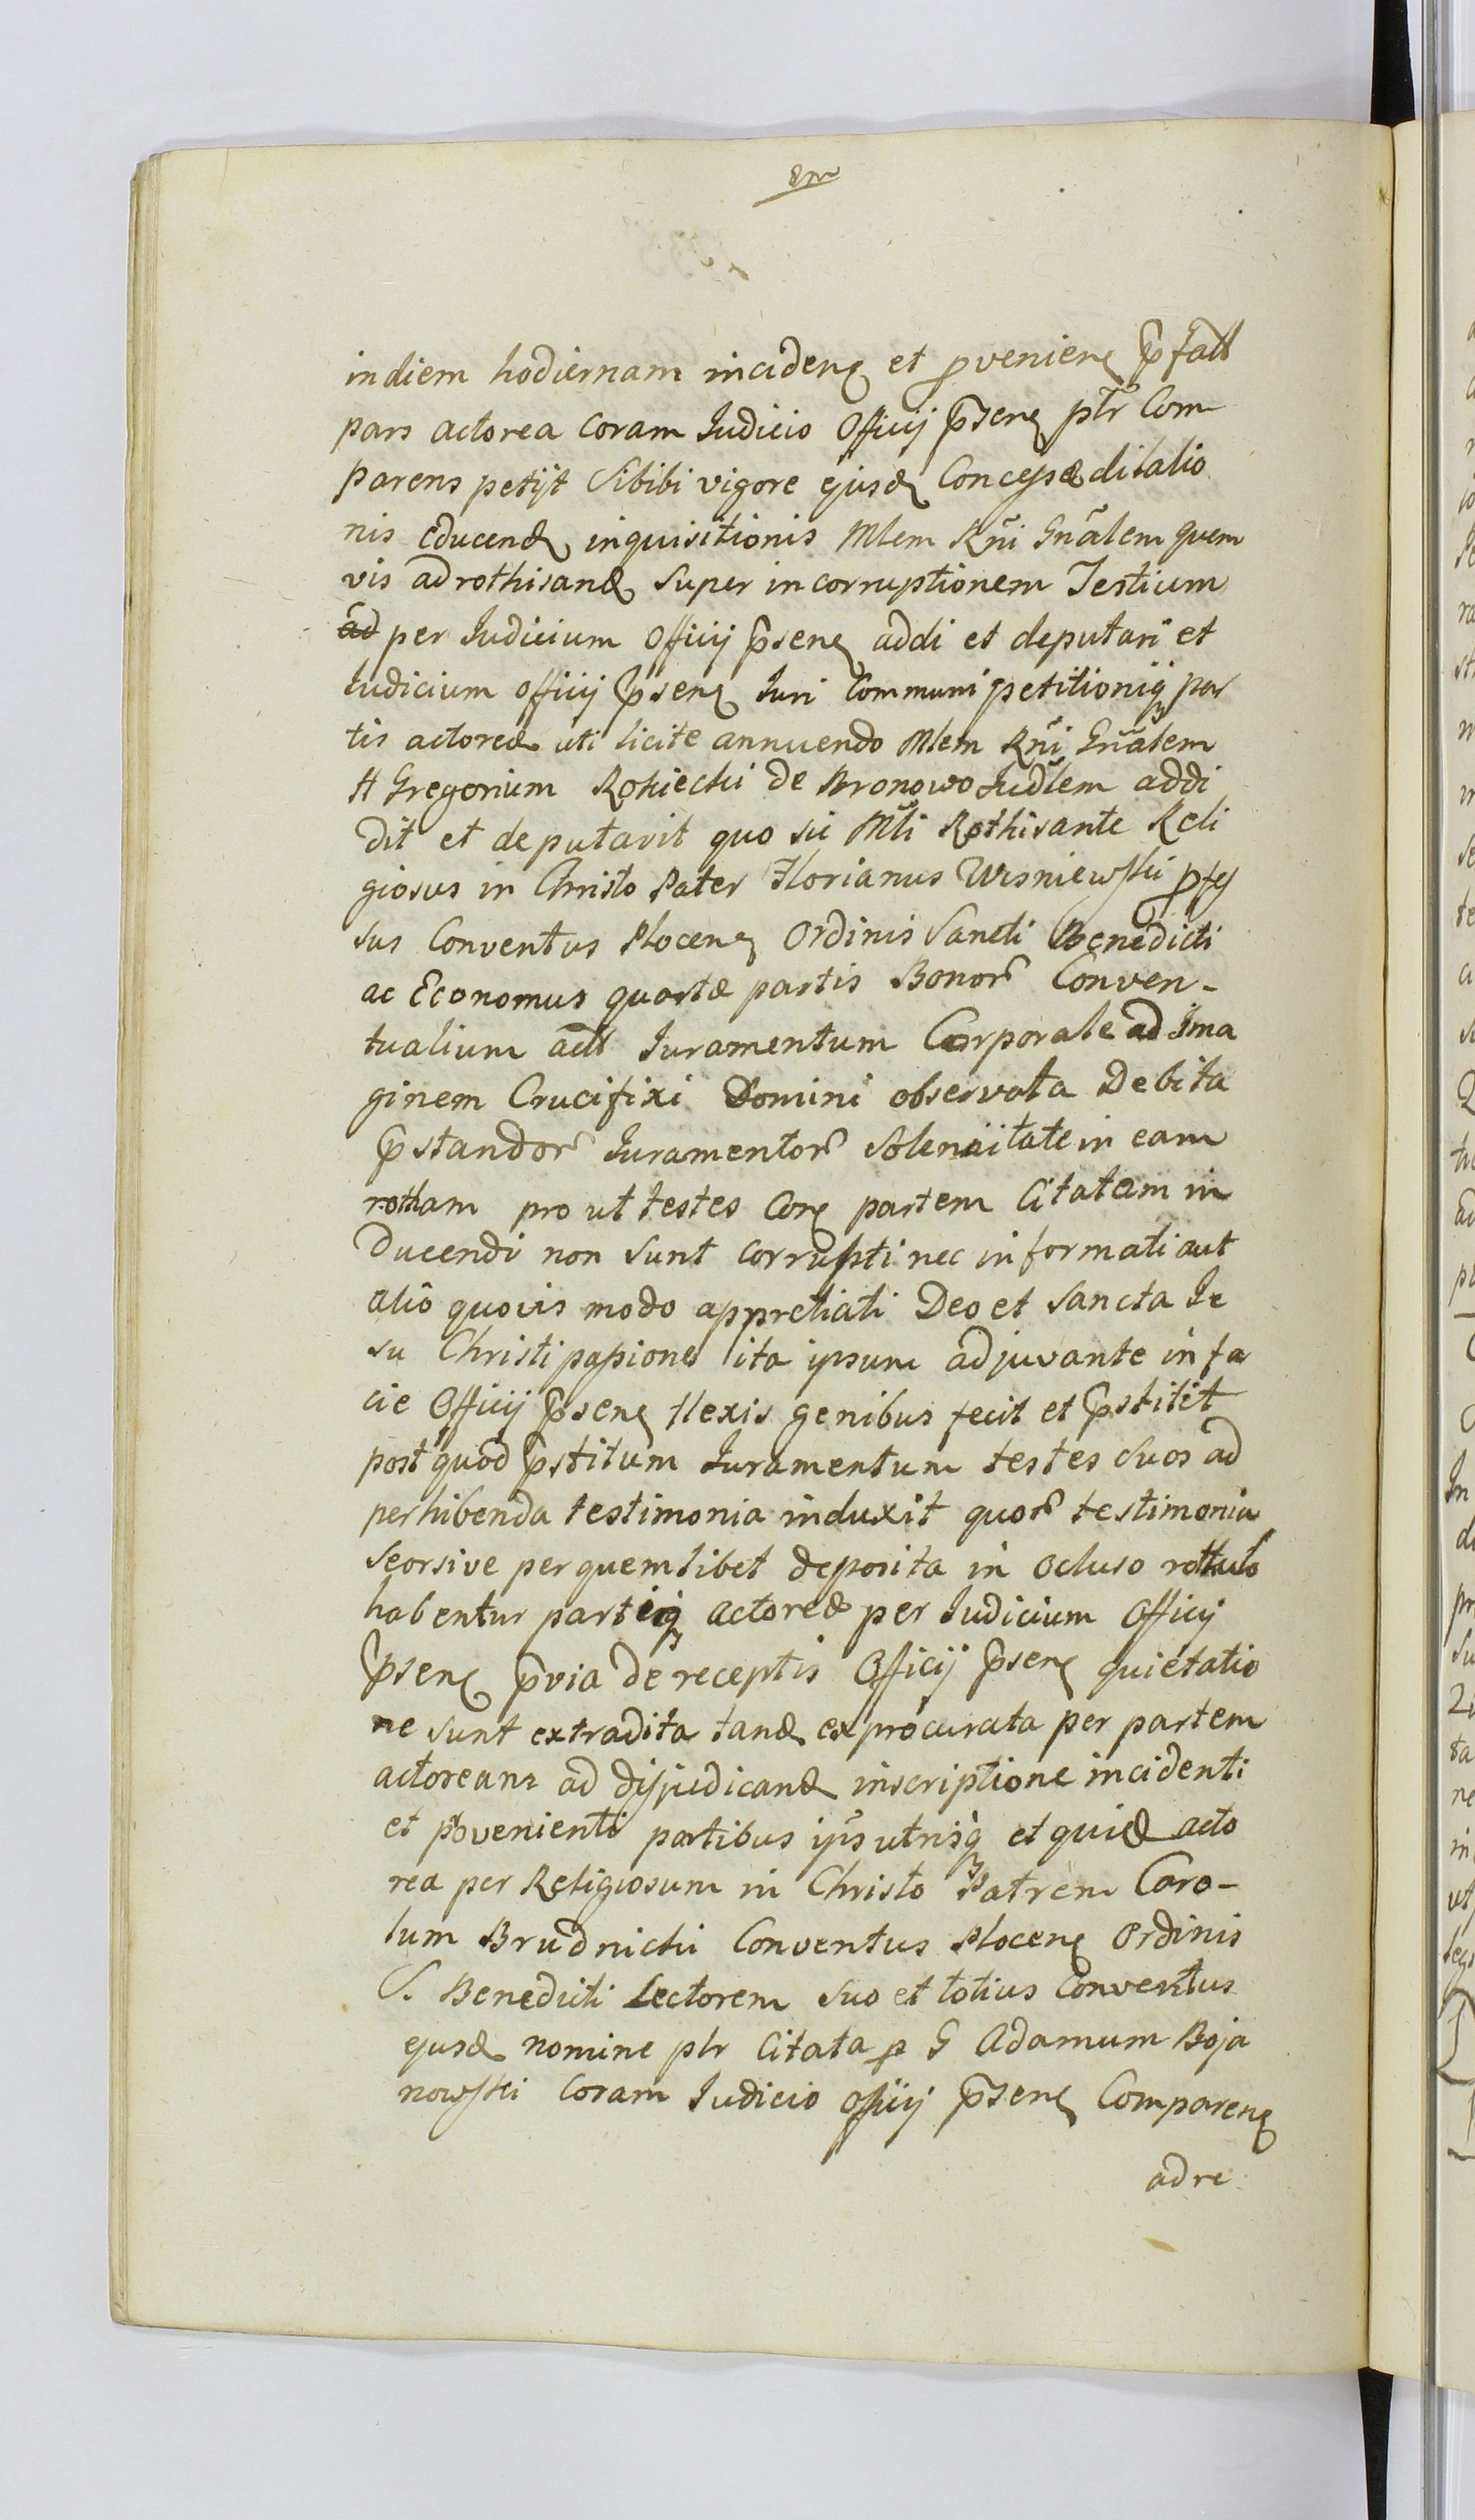 indiem hodiernam incidenꝭ et ꝓvenienꝭ p̄fatt
pars actorea coram Iudicio Officij p̄senꝭ ptr̄ Com
parens petijt Sibibi vigore ejusđ Concessæ dilatio
nis educenđ inquisitionis Mlem Rñi Gnãlem quem
vis adrothisanđ super incorruptionem Testium
ad per Iudicium Officij p̄senꝭ addi et deputari et
Iudicium officij p̄senꝭ Iuri Communi petitioniqꝫ par
tis actoreæ uti licite annuendo Mlem Rñi Gnãlem
H Gregorium Rokiecki de Bronowo Iudlem addi
dit et deputavit quo sic Mlti Rothisante Reli
giosus in Christo Pater Florianus Wisniewski ꝓfes
sus Conventus Plocenꝭ Ordinis Sancti Benedicti
ac Economus quartæ partis Bonorꝫ Conven-
tualium actt Iuramentum Corporale ad Ima
ginem Crucifixi Domini observata Debita
p̄standorꝫ Iuramentorꝫ Solennitate in eam
rotham pro ut testes Conꝭ partem Citatam in
ducendi non sunt corrupti nec informati aut
alio quovis modo appretiati Deo et Sancta Ie
su Christi passiones ita ipsum adjuvante in fa
cie Officij p̄senꝭ flexis genibus fecit et p̄stitit
post quod p̄stitum Iuramentum testes suos ad
perhibenda testimonia induxit quorꝫ testimonia
seorsive per quemlibet deposita in ocluso rottulo
habentur partiqꝫ actoreæ per Iudicium Officij
p̄senꝭ p̄via de receptis Officij p̄senꝭ quietatio
ne sunt extradita tanđ ex procurata per partem
actoream ad disjudicanđ inscriptione incidenti
et provenienti partibus ip̄s utrisqꝫ et quiđ acto
rea per Religiosum in Christo Patrem Caro-
lum Brudnicki Conventus Plocenꝭ Ordinis
S. Benedicti Lectorem suo et totius Conventus
ejusđ nomine ptr Citata ꝑ G Adamum Boja
nowski Coram Iudicio officij p̄senꝭ Comparenꝭ
adre